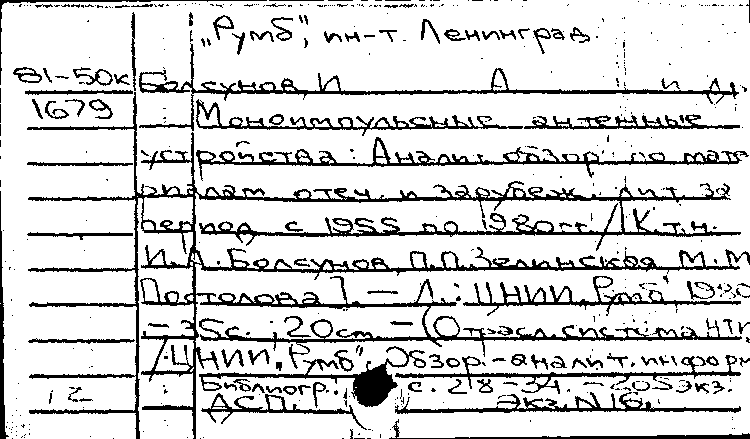 „Румб", ин-т. Ленинград.
81-50к Болсунов, И А и др.
1679 Моноимпульсные антенные
устройства: Аналит. обзор по мате
риалам отеч. и зарубеж. лит. за
период с 1955 по 1980гг. / [К.т.н.
И.А. Болсунов, П.П. Зелинская, М.М
Постолова]. — Л.: ЦНИИ „Румб", 1980
– 35с.; 20см – (Отрасл. система НТИ
/ ЦНИИ „Румб". Обзор.-аналит. информ
Библиогр.: с. 28-34. – 205 экз.
12 ДСП. Экз. N16.